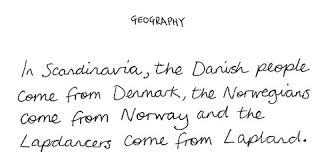 GEOGRAPHY
In Scandinavia, the Danish people
come from Denmark, the Norwegians
come from Norway and the
Lapdancers come from Lapland.